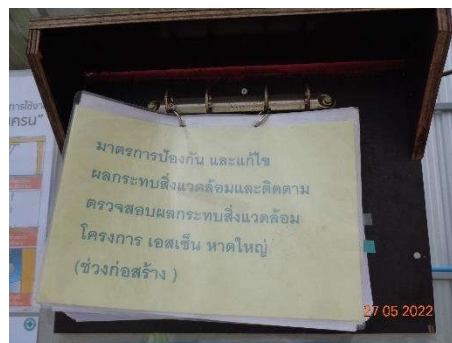 การใช้งา
ครน"
มาตรการป้องกัน และแก้ไข
ผลกระทบสิ่งแวดล้อมและติดตาม
ตรวจสอบผลกระทบสิ่งแวดล้อม
โครงการ เอสเซ็น หาดใหญ่
(ช่วงก่อสร้าง )
27 05 2022